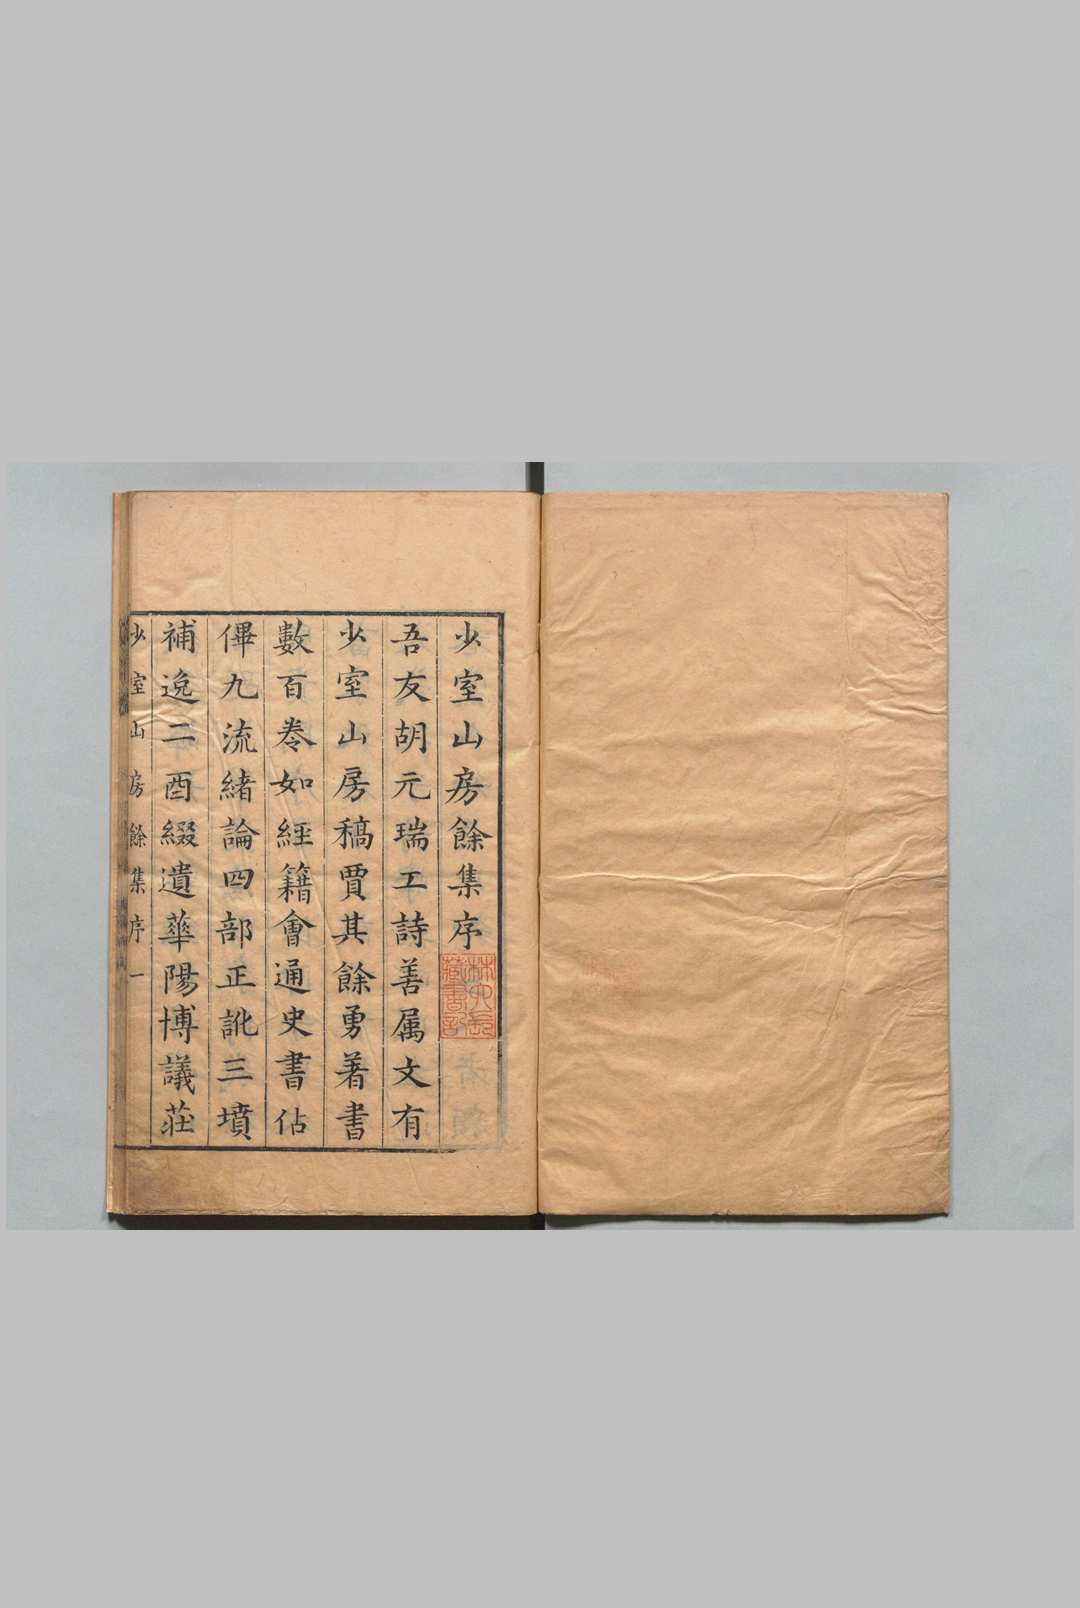 少室山房餘集序
吾友胡元瑞工詩善属文有
少室山房稿賈其餘勇著書
數百卷如經籍會通史書佔
僤九流緒論四部正訛三墳
補逸二酉綴遺華陽博議莊
少室山房餘集序 一